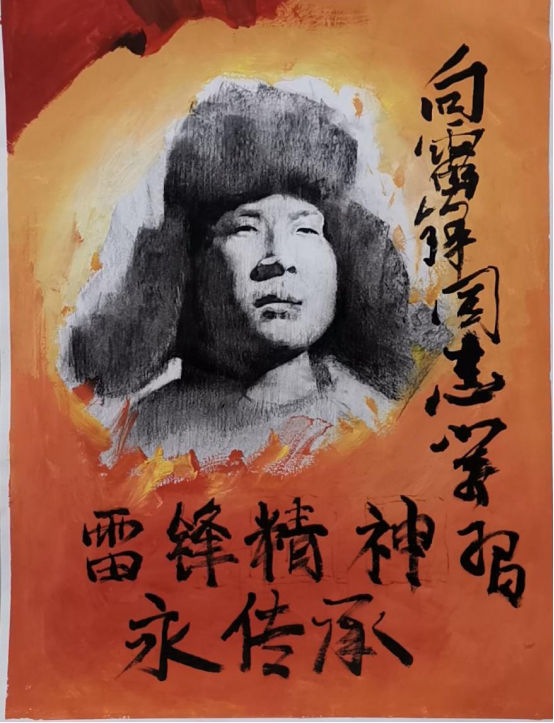 向雷锋同志学习
雷锋精神
永传承